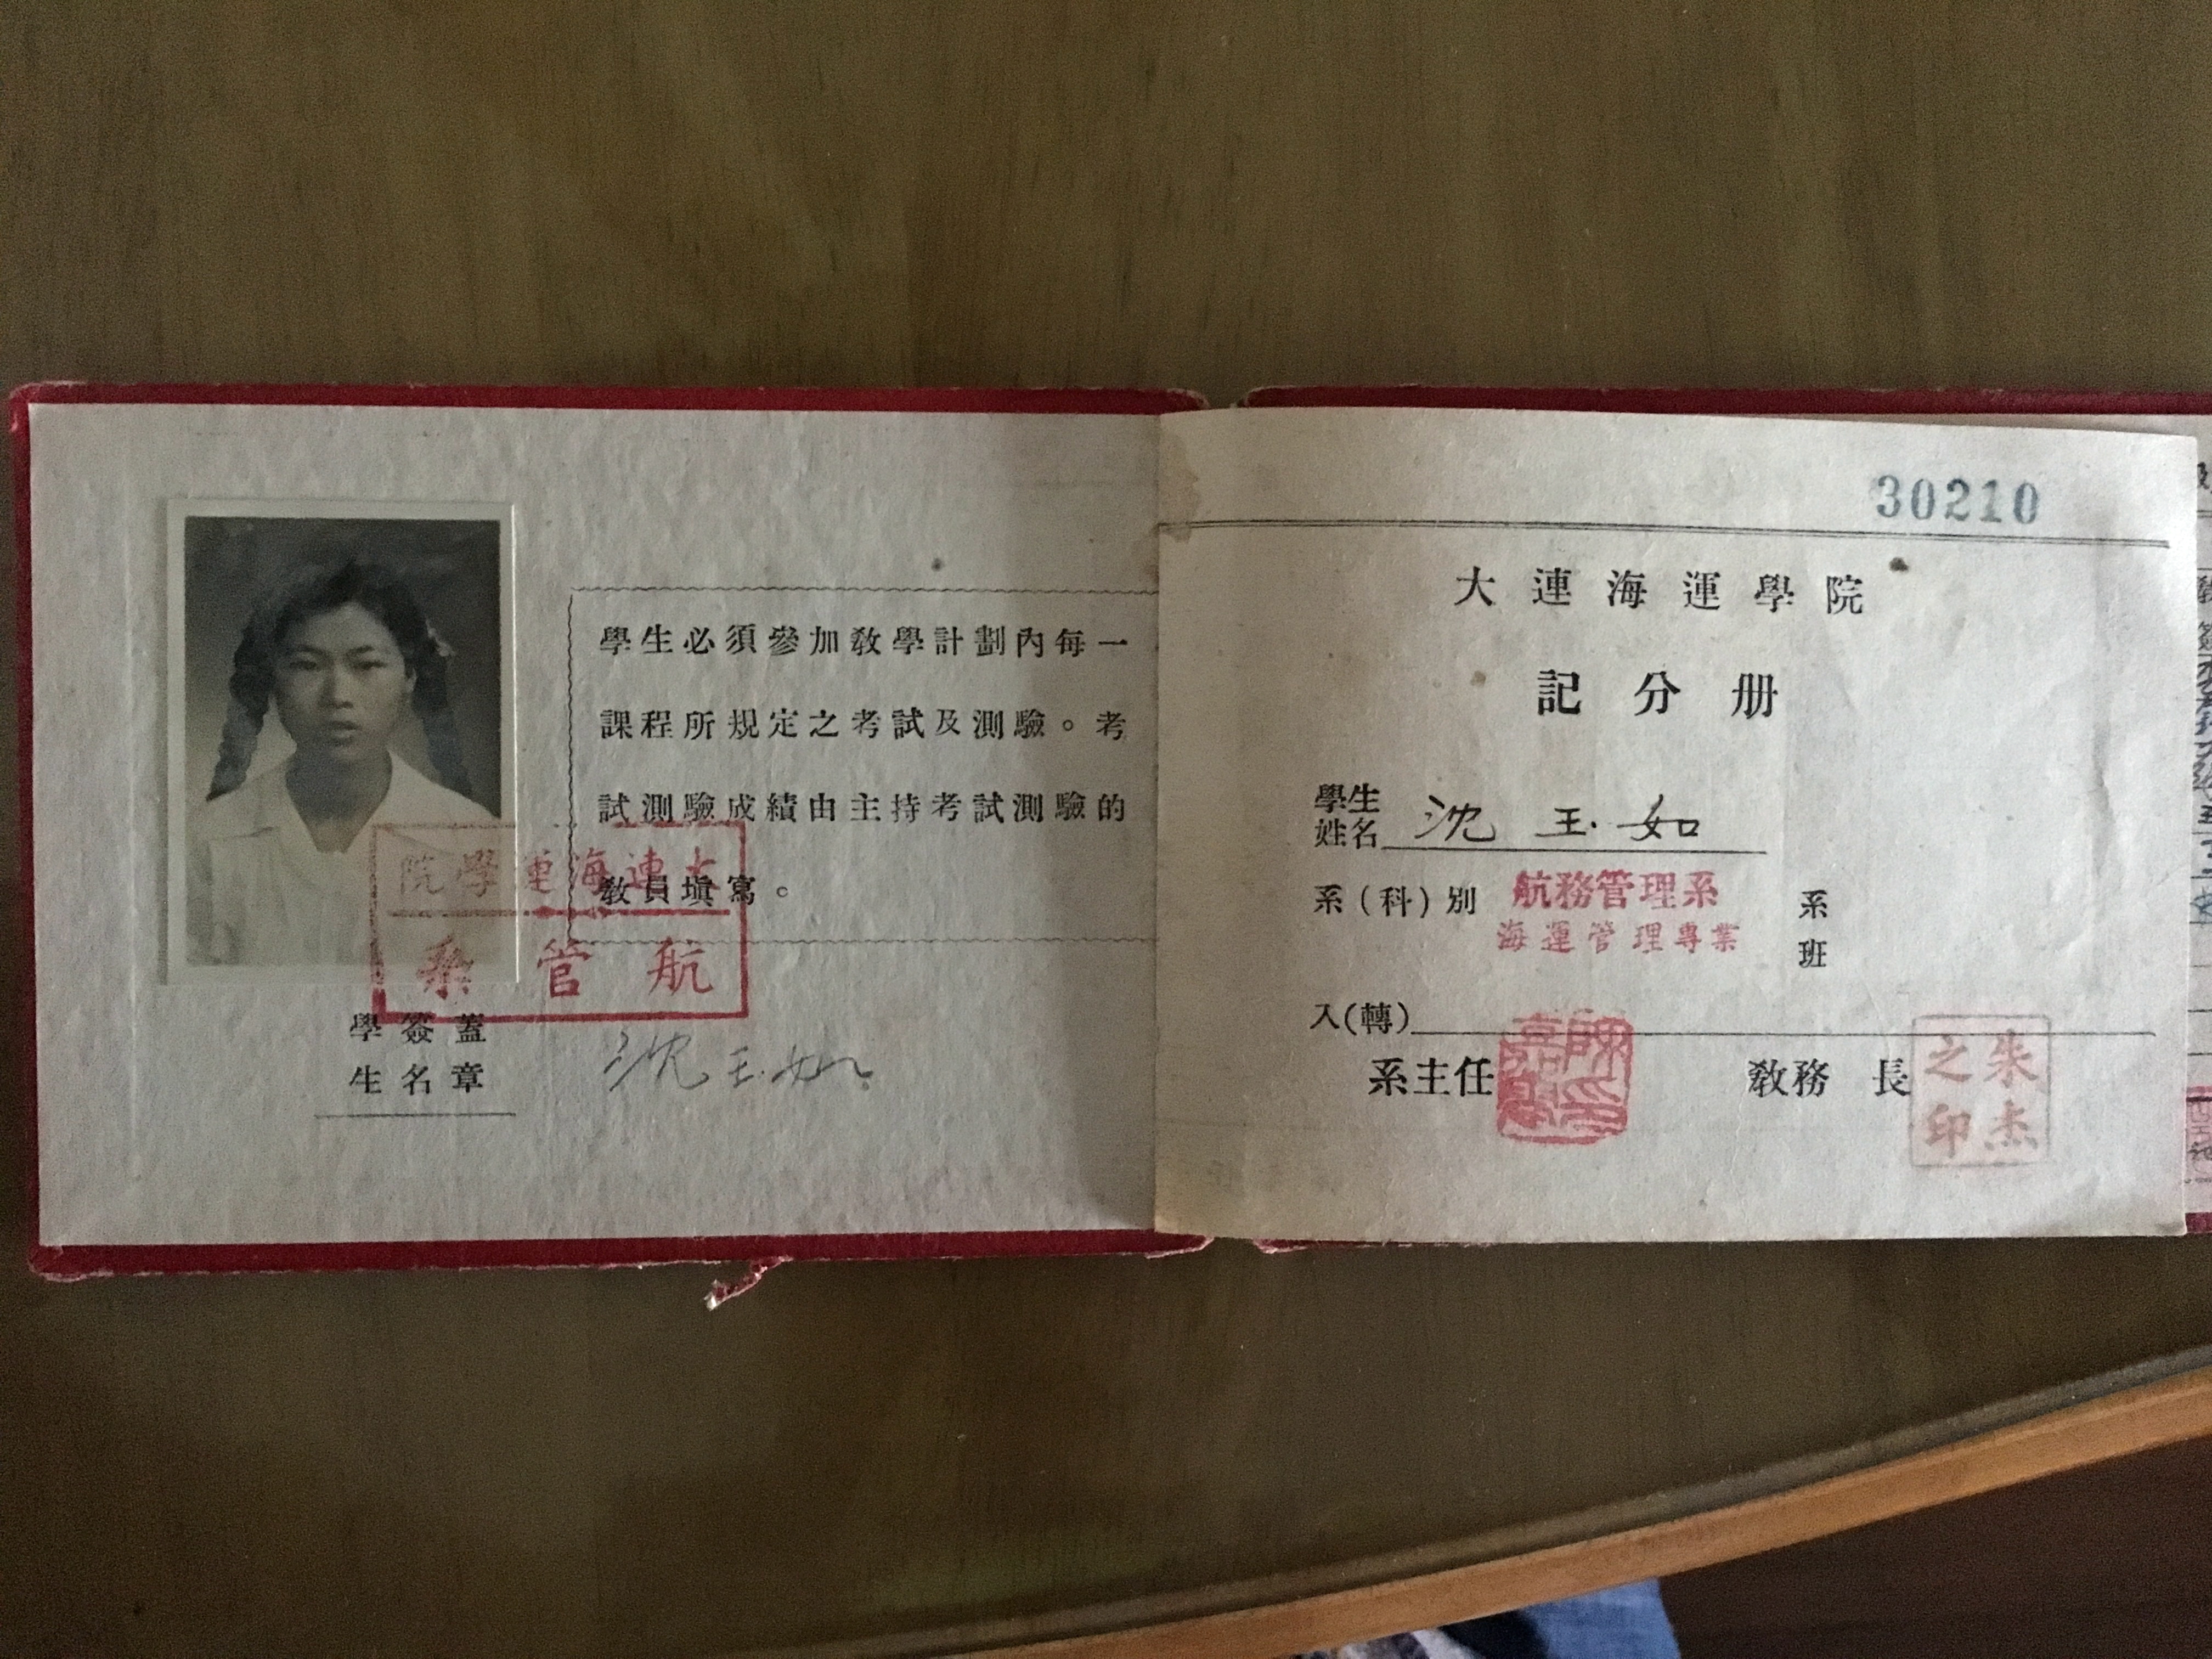 學生必須參加敎學計劃內每一
課程所規定之考試及測驗。考
試測驗成績由主持考試測驗的
敎員塡寫。
大連海運學院
航管系
學生簽名蓋章
沈玉如
30210
大連海運學院
記分册
學生姓名 沈玉如
系(科)別 航務管理系 系
海運管理專業 班
入(轉)
系主任
敎務長 朱杰之印